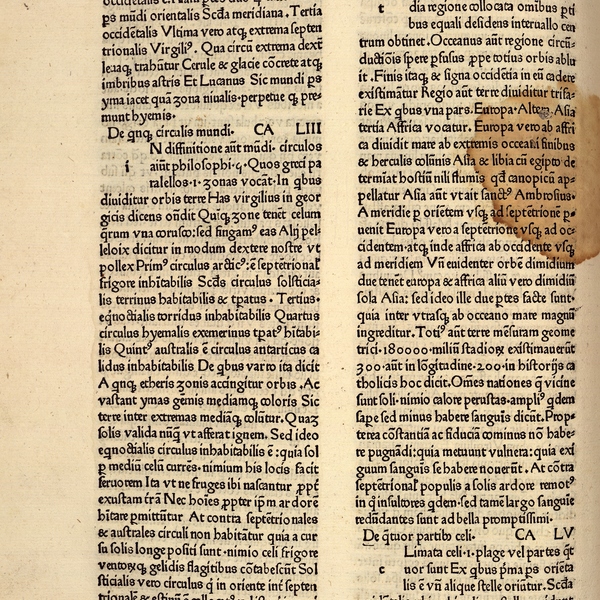 ps mũdi orientalis Scđa meridiana. Tertia
occidẽtalis Vltima vero atq; extrema septen
trionalis Virgiliꝰ. Qua circũ extrema dext̃
leuaq; trabũtur Cerule & glacie cõcrete atq;
imbribus astris Et Lucanus Sic mundi ps
yma iacet quã zona niualis·perpetue q; pre-
munt hyemis·
De qnq; circulis mundi· CA LIII
N diffinitione aũt mũdi· circulos
i aiũt philosophi·q·Quos greci pa
ralellos·i·zonas vocãt·In qbus
diuiditur orbis terre Has virgilius in geor
gicis dicens oñdit Quiq; zone tenẽt celum
qrum vna corusco:sed fingamꝰ eas Alij pel-
leloix dicitur in modum dextere nostre vt
pollex Primꝰ circulus arcticꝰ:ẽ septẽtrional̃
frigore inhĩtabilis Scđs circulus solsticia-
lis terrinus habitabilis & tpatus· Tertius·
eqnoctialis torridus inhabitabilis Quartus
circulus hyemalis exemerinus tpatꝰ hĩtabi-
lis Quintꝰ australis ẽ circulus antarticus ca
lidus inhabitabilis De qbus varro ita dicit
A qnq; etheris zonis accingitur orbis .Ac
vastant ymas gẽmis mediamq; coloris Sic
terre inter extremas mediãq; colũtur.Quaz
solis valida nũq; vt afferat ignem. Sed ideo
eqnoctialis circulus inhabitabilis ẽ:quia sol
p mediũ celũ currẽs·nimium his locis facit
feruorem Ita vt ne fruges ibi nascantur ꝓpt̃
exustam frã Nec hoĩes ꝓpter ipm ardorẽ
hĩtare pmittũtur At contra septẽtrionales
& australes circuli non habitãtur quia a cur
su solis longe positi sunt·nimio celi frigore
ventoꝝq; gelidis flagitibus cõtabescũt Sol
sticialis vero circulus q in oriente int̃ septen
t dia regione collocata omibus pti
bus equali desidens interuallo cen
trum obtinet·Occeanus aũt regione circũ-
ductiõis spere pfusus ꝓpe totius orbis ablu
it·Finis itaq; & signa occidẽtia in eũ cadere
existimãtur Regio aũt terre diuiditur trifa-
rie Ex qbus vna pars·Europa·Altera·Asia
tertia Affrica vocatur· Europa vero ab affri
ca diuidit mare ab extremis occeãi finibus
& herculis colũnis Asia & libia cũ egipto de
termiat hostiũ nili flumis qđ canopicũ ap-
pellatur Asia aũt vt ait sanctꝰ Ambrosius·
A meridie p orientem vsq; ad septẽtrionẽ p-
uenit Europa vero a septẽtrione vsq; ad oc-
cidentem·atq; inde affrica ab occidente vsq;
ad meridiem Vñ euidenter orbẽ dimidium
due tenẽt europa & affrica aliũ vero dimidiũ
sola Asia: sed ideo ille due ptes facte sunt·
quia inter vtrasq; ab occeano mare magnũ
ingreditur·Totiꝰ aũt terre mẽsuram geome
trici·180000·miliũ stadioꝝ existimauerũt
300·aũt in lõgitudine·200·in historijs ca
tholicis hoc dicit·Om̃es nationes q vicine
sunt soli·nimio calore perustas·ampliꝰ qdem
sape sed minus habere sanguis dicũt.Prop-
terea cõstantiã ac fiduciã cominus nõ habe-
re pugnãdi:quia metuunt vulnera:quia exi
guum sanguis se habere nouerũt· At cõtra
septẽtrional̃ populis a solis ardore remotꝰ
in q̃ insultores qdem·sed tamẽ largo sanguie
redũdantes sunt ad bella promptissimi·
De q̃tuor partibꝰ celi· CA LV
Limata celi·i·plage vel partes q̃t
c nor sunt Ex qbus pĩma ps orieta
lis ẽ vñ alique stelle oriũtur.Scđa